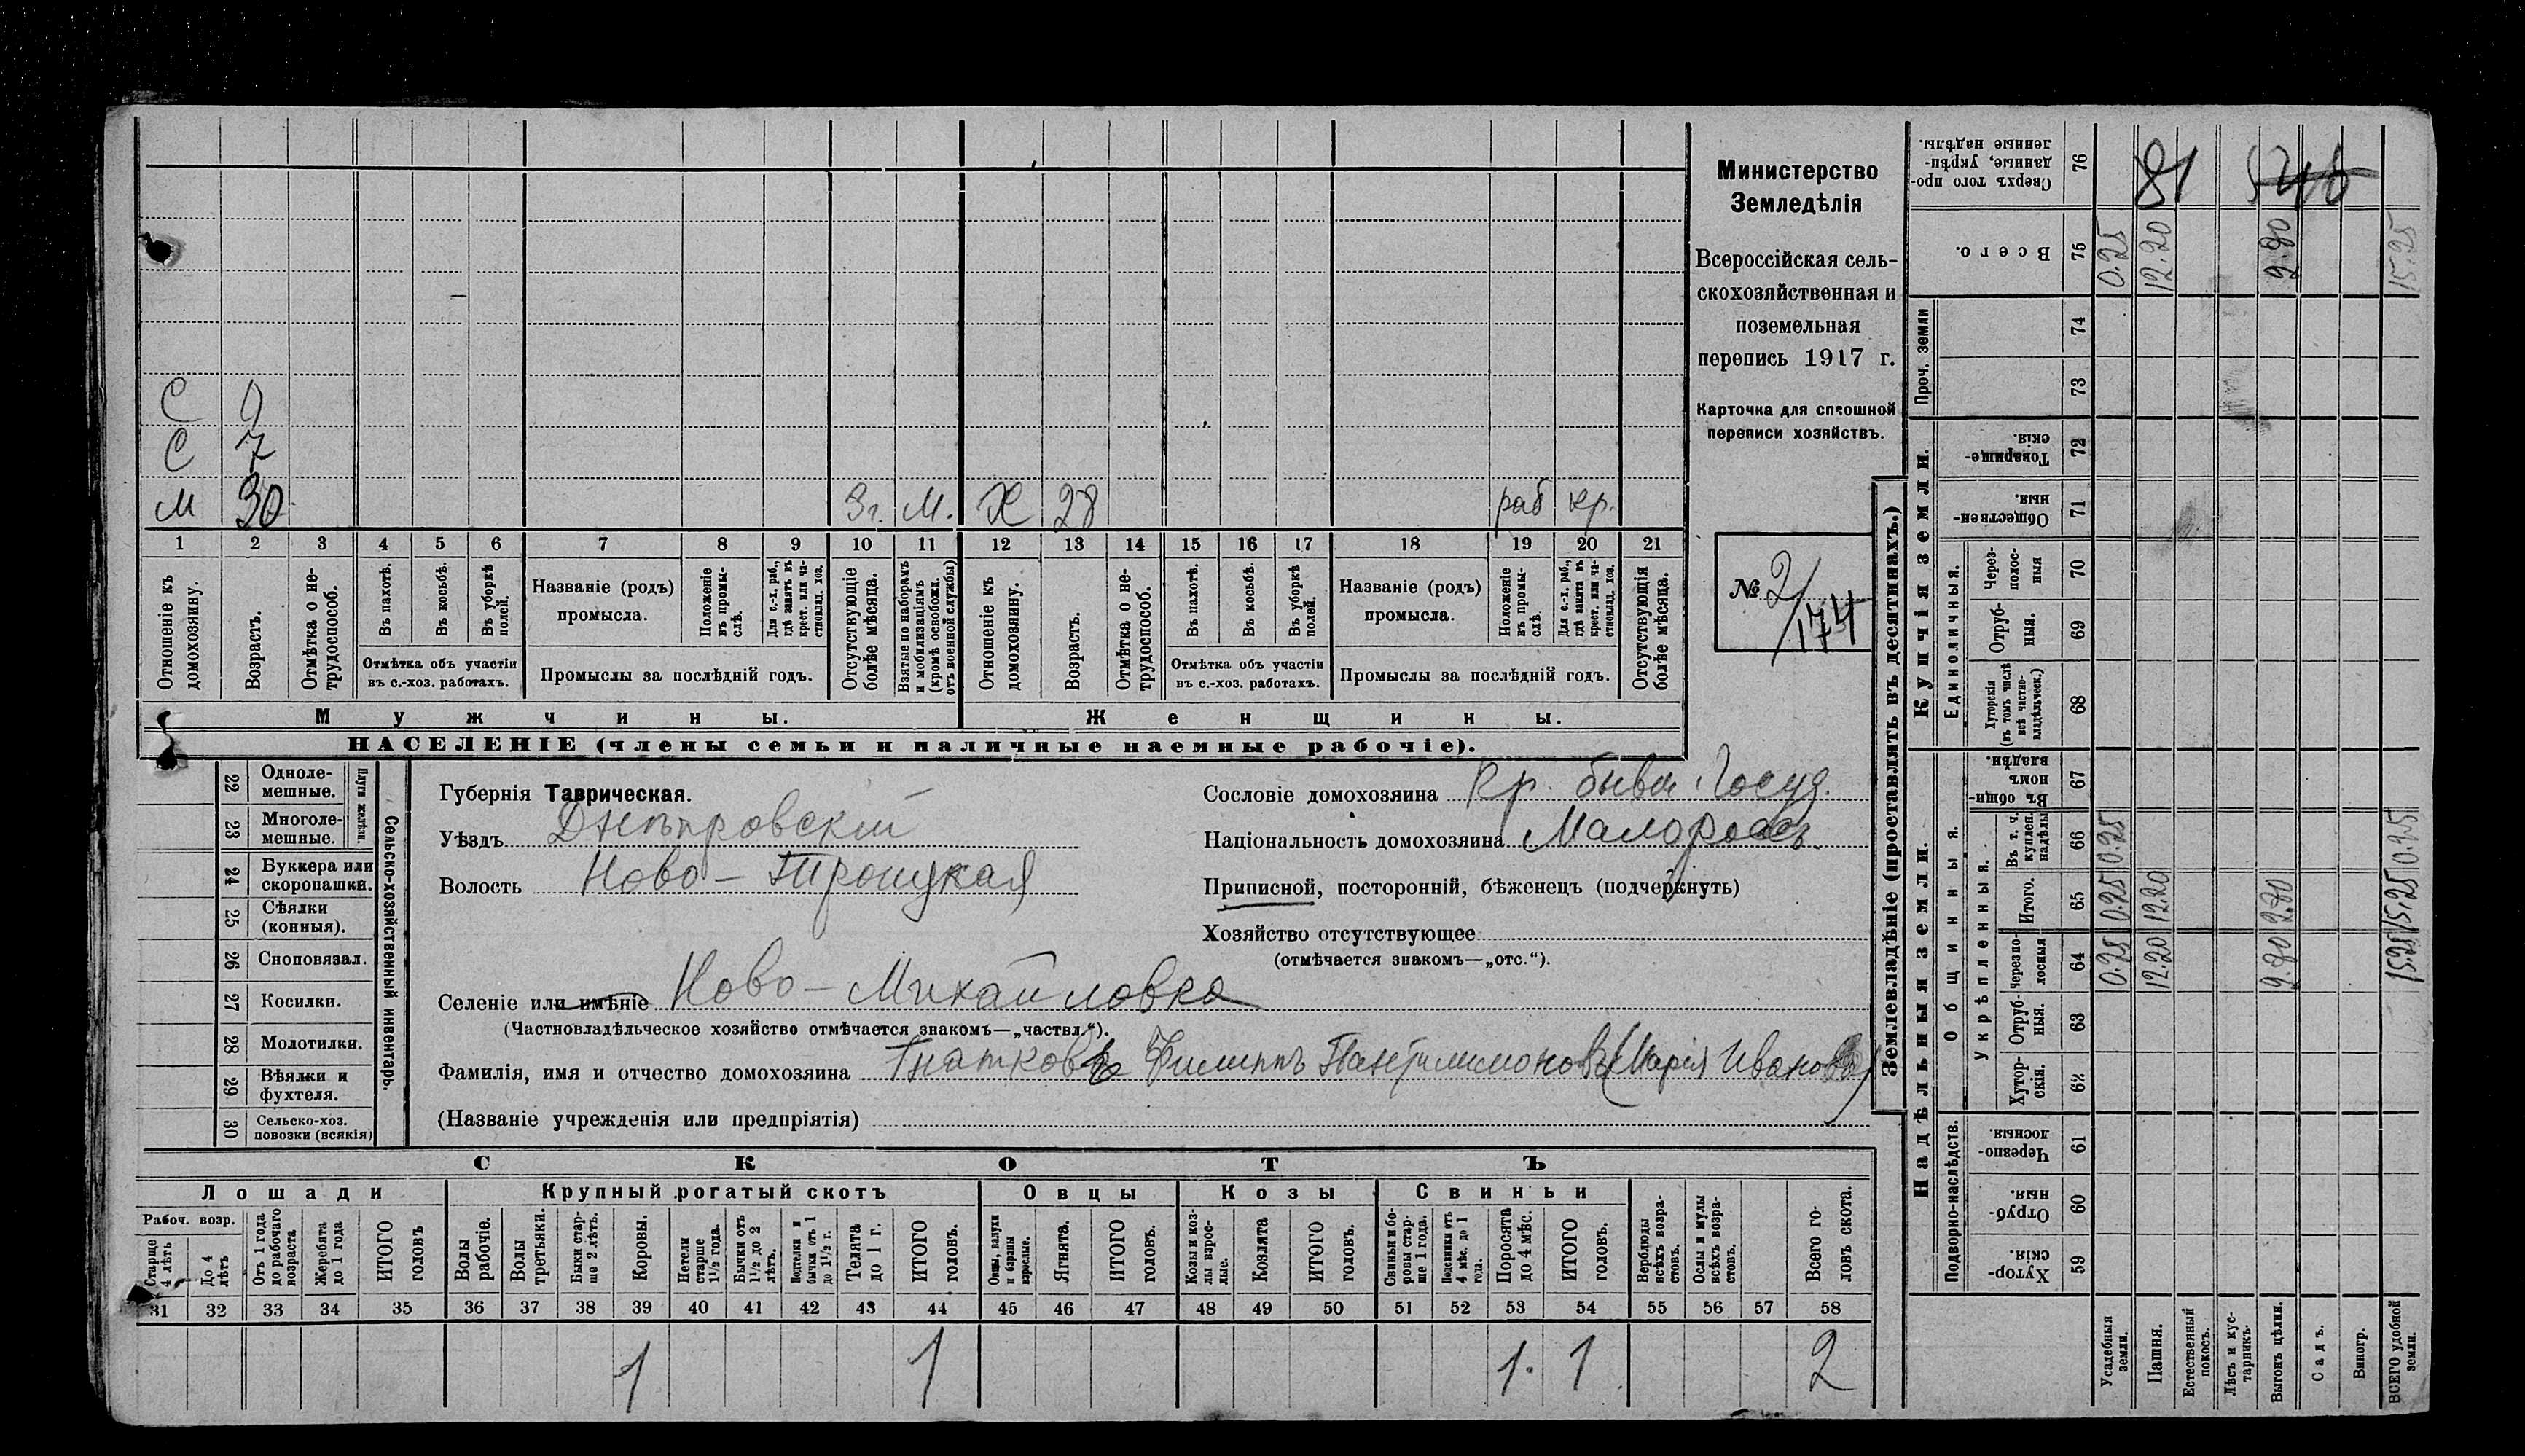 С 9
С 7
М 30 3 г. М. Х 28 раб кр.
1 2 3 4 5 6 7 8 9 10 11 12 13 14 15 16 17 18 19 20 21
Отношеніе къ домохозяину.
Возрастъ.
Отмѣтка о нетрудоспособ.
Въ пахотѣ.
Въ косьбѣ.
Въ уборкѣ полей.
Отмѣтка объ участіи
въ с.-хоз. работахъ.
Названіе (родъ)
промысла.
Положеніе въ промыслѣ.
Для с.-х. раб., гдѣ занятъ въ крест. или частновлад. хоз.
Промыслы за послѣдній годъ.
Отсутствующіе болѣе мѣсяца.
Взятые по наборамъ и мобилизаціямъ (кромѣ освобожд. отъ военной службы)
Отношеніе къ домохозяину.
Возрастъ.
Отмѣтка о нетрудоспособ.
Въ пахотѣ.
Въ косьбѣ.
Въ уборкѣ полей.
Отмѣтка объ участіи
въ с.-хоз. работахъ.
Названіе (родъ)
промысла.
Положеніе въ промыслѣ.
Для с.-х. раб., гдѣ занята въ крест. или частновлад. хоз.
Промыслы за послѣдній годъ.
Отсутствующія болѣе мѣсяца.
Мужчины.
Женщины.
НАСЕЛЕНІЕ (члены семьи и наличные наемные рабочіе).
Министерство
Земледѣлія
Всероссійская сель-
скохозяйственная и
поземельная
перепись 1917 г.
Карточка для сплошной
переписи хозяйствъ.
№ 2/174
22 Одноле-
мешные.
23 Многоле-
мешные.
Плуги желѣзн.
24 Буккера или
скоропашки.
25 Сѣялки
(конныя).
26 Сноповязал.
27 Косилки.
28 Молотилки.
29 Вѣялки и
фухтеля.
30 Сельско-хоз.
повозки (всякія)
Сельско-хозяйственный инвентарь.
Губернія Таврическая.
Уѣздъ Днѣпровскій
Волость Ново-Троицкая
Селеніе или имѣніе Ново-Михайловка
(Частновладѣльческое хозяйство отмѣчается знакомъ—„частвл.“).
Фамилія, имя и отчество домохозяина Гнатковъ Филиппъ Пантилимоновъ (Марія Иванова)
(Названіе учрежденія или предпріятія)
Сословіе домохозяина Кр. бывш. Госуд.
Національность домохозяина Малороссъ.
Приписной, посторонній, бѣженецъ (подчеркнуть)
Хозяйство отсутствующее
(отмѣчается знакомъ—„отс.“).
СКОТЪ
Лошади
Рабоч. возр.
Старше 4 лѣтъ
До 4 лѣтъ
Отъ 1 года до рабочаго возраста
Жеребята до 1 года
ИТОГО головъ
Крупный рогатый скотъ
Волы рабочіе.
Волы третьяки.
Быки старше 2 лѣтъ.
Коровы.
Нетели старше 1½ года.
Бычки отъ 1½ до 2 лѣтъ.
Подтелки и бычки отъ 1 до 1½ г.
Телята до 1 г.
ИТОГО головъ.
Овцы
Овцы, валухи и бараны взрослые.
Ягнята.
ИТОГО головъ.
Козы
Козы и козлы взрослые.
Козлята
ИТОГО головъ.
Свиньи
Свиньи и боровы старше 1 года.
Подсвинки отъ 4 мѣс. до 1 года.
Поросята до 4 мѣс.
ИТОГО головъ.
Верблюды всѣхъ возрастовъ.
Ослы и мулы всѣхъ возрастовъ.
Всего головъ скота.
31 32 33 34 35 36 37 38 39 40 41 42 43 44 45 46 47 48 49 50 51 52 53 54 55 56 57 58
1 1 1. 1 2
Землевладѣніе (проставлять въ десятинахъ.)
Сверхъ того проданные, укрѣпленные надѣлы. 76 81
Всего. 75 0.25 12.20 2.80 15.25
Проч. земли
74
73
Купчія земли.
Товарищескія. 72
Общественныя. 71
Единоличныя.
Черезполосныя 70
Отрубныя. 69
Хуторскія (въ томъ числѣ всѣ частновладѣльческ.) 68
Надѣльныя земли.
Общинныя.
Въ общинномъ владѣн. 67
Укрѣпленныя.
Въ т. ч. куплен. надѣлы 66 0.25 0.25
Итого. 65 0.25 12.20 2.80 15.25
Черезполосныя 64 0.25 12.20 2.80 15.25
Отрубныя. 63
Хуторскія. 62
Подворно-наслѣдств.
Черезполосныя 61
Отрубныя. 60
Хуторскія 59
Усадебныя земли.
Пашня.
Естественный покосъ.
Лѣсъ и кустарникъ.
Выгонъ цѣлин.
Садъ.
Виногр.
ВСЕГО удобной земли.